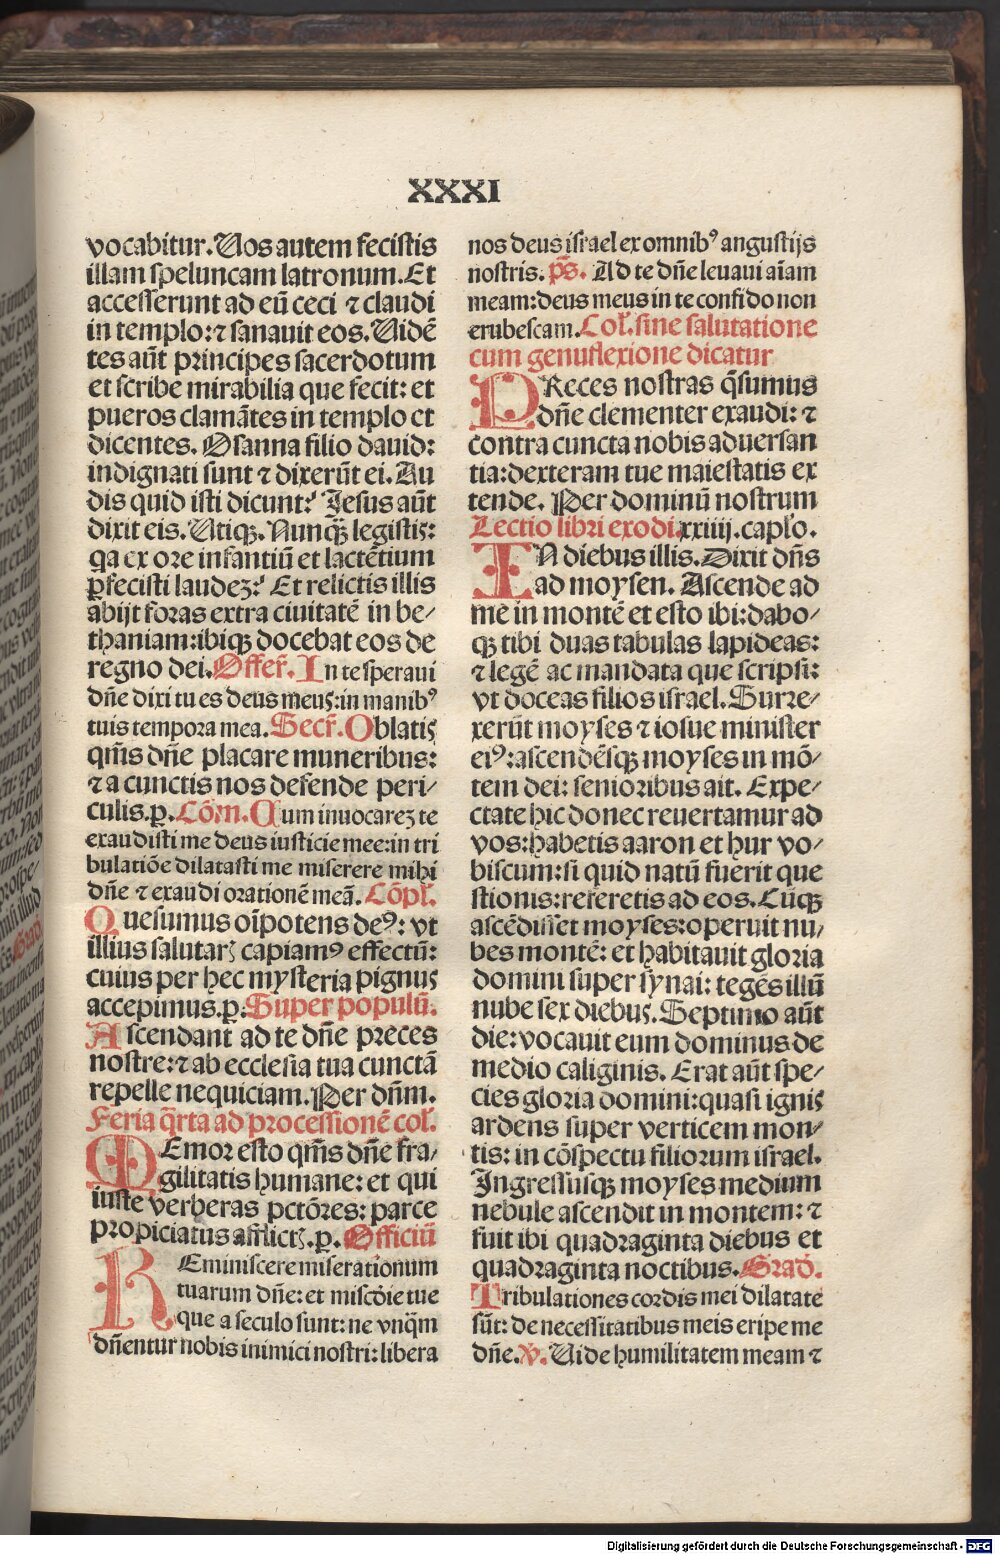 XXXI
vocabitur. Uos autem fecistis
illam speluncam latronum. Et
accesserunt ad eū ceci ⁊ claudi
in templo: ⁊ sanauit eos. Uidē
tes aūt principes sacerdotum
et scribe mirabilia que fecit: et
pueros clamātes in templo et
dicentes. Osanna filio dauid:
indignati sunt ⁊ dixerūt ei. Au
dis quid isti dicunt? Jesus aūt
dixit eis. Utiqꝫ. Nunqꝫ legistis:
qa ex ore infantiū et lactētium
ꝑfecisti laudeꝫ? Et relictis illis
abijt foras extra ciuitatē in be⸗
thaniam: ibiqꝫ docebat eos de
regno dei. Offer̄. In te speraui
dn̄e dixi tu es deus meus: in manibꝰ
tuis tempora mea. Secr̄. Oblatis
qm̄s dn̄e placare muneribus:
⁊ a cunctis nos defende peri⸗
culis. ꝑ. Cōm. Cum inuocareꝫ te
exaudisti me deus iusticie mee: in tri
bulatiōe dilatasti me miserere mihi
dn̄e ⁊ exaudi orationē meā. Cōpl̄.
Quesumus oīpotens deꝰ: vt
illius salutarꝭ capiamꝰ effectū:
cuius per hec mysteria pignus
accepimus. ꝑ. Super populū.
Ascendant ad te dn̄e preces
nostre: ⁊ ab ecclesia tua cunctā
repelle nequiciam. Per dn̄m.
Feria q̄rta ad processionē col̄.
MEmor esto qm̄s dn̄e fra⸗
gilitatis humane: et qui
iuste verberas pctōres: parce
propiciatus afflictꝭ. ꝑ. Officiū
REminiscere miserationum
tuarum dn̄e: et miscōie tue
que a seculo sunt: ne vnq̄m
dn̄entur nobis inimici nostri: libera
nos deus israel ex omnibꝰ angustijs
nostris. ps̄. Ad te dn̄e leuaui aīam
meam: deus meus in te confido non
erubescam. Col̄. sine salutatione
cum genuflexione dicatur
PReces nostras q̄sumus
dn̄e clementer exaudi: ⁊
contra cuncta nobis aduersan
tia: dexteram tue maiestatis ex
tende. Per dominū nostrum
Lectio libri exodi. xxiiij. capl̄o.
IN diebus illis. Dixit dn̄s
ad moysen. Ascende ad
me in montē et esto ibi: dabo⸗
qꝫ tibi duas tabulas lapideas:
⁊ legē ac mandata que scripsi:
vt doceas filios israel. Surre⸗
xerūt moyses ⁊ iosue minister
eiꝰ: ascendēsqꝫ moyses in mō⸗
tem dei: senioribus ait. Expe⸗
ctate hic donec reuertamur ad
vos: habetis aaron et hur vo⸗
biscum: si quid natū fuerit que
stionis: referetis ad eos. Cūqꝫ
ascēdisset moyses: operuit nu⸗
bes montē: et habitauit gloria
domini super synai: tegēs illū
nube sex diebus. Septimo aūt
die: vocauit eum dominus de
medio caliginis. Erat aūt spe⸗
cies gloria domini: quasi ignis
ardens super verticem mon⸗
tis: in cōspectu filiorum israel.
Ingressusqꝫ moyses medium
nebule ascendit in montem: ⁊
fuit ibi quadraginta diebus et
quadraginta noctibus. Grad̄.
Tribulationes cordis mei dilatate
sūt: de necessitatibus meis eripe me
dn̄e. v̄. Uide humilitatem meam ⁊
Digitalisierung gefördert durch die Deutsche Forschungsgemeinschaft - DFG